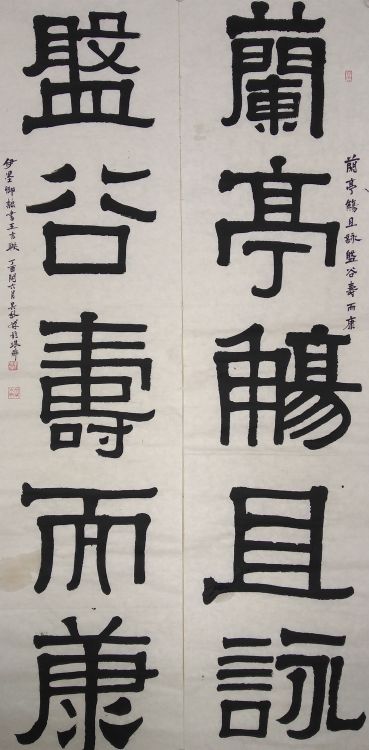 蘭亭觴且詠盤谷壽而康
蘭亭觴且詠
盤谷壽而康
伊墨卿書五言联丁酉闰六月